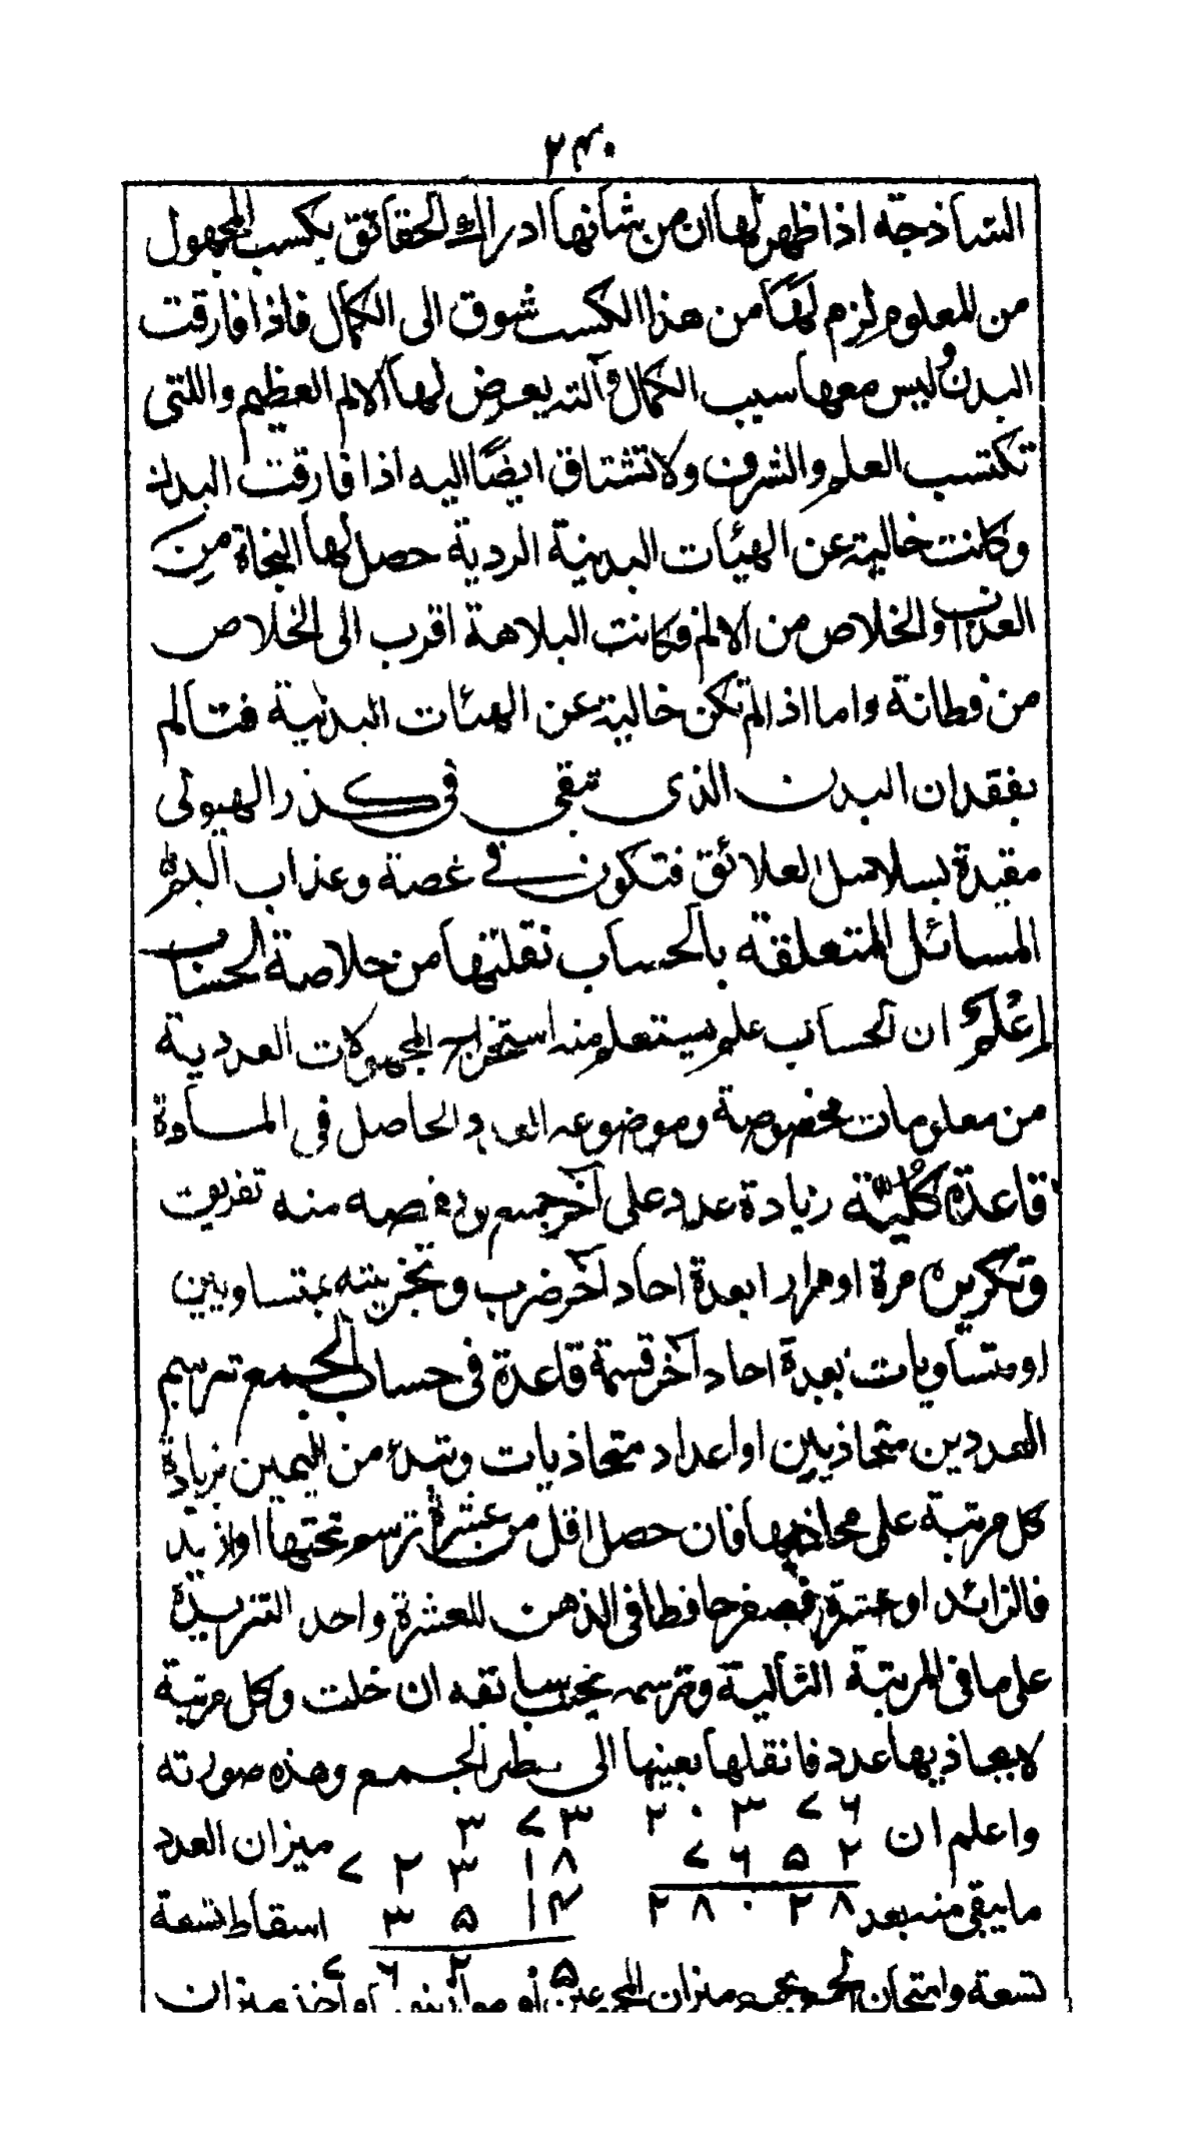 ۲۴۰
الساذجة اذا ظهر لها ان من شانها ادراك الحقائق بكسب المجهول
من المعلوم لزم لها من هذا الكسب شوق الى الكمال فاذا فارقت
البدن وليس معها سبب الكمال وآلته يعرض لها الالم العظيم واللتى
تكتسب العلم والشرف ولا تشتاق ايضًا اليه اذا فارقت البدن
وكانت خالية عن الهيئات البدنية الردية حصل لها النجاة مِنَ
العذاب والخلاص من الالم فكانت البلاهة اقرب الى الخلاص
من فطانة واما اذا لم تكن خالية عن الهيئات البدنية فتتالم
بفقدان البدن الذى تبقى فى كدر الهيولى
مقيدة بسلاسل العلائق فتكون فى غصة وعذاب اليم
المسائل المتعلقة بالحساب نقلتها من خلاصة الحساب
اِعْلَمْ ان الحساب علم يستعلم منه استخراج المجهولات العددية
من معلومات مخصوصة وموضوعه العدد الحاصل فى المادة
قاعدة كُلّيّة زيادة عدد على آخر جمع ونقصه منه تفريق
وتكريره مرة او مرارا بعدة احاد آخر ضرب وتجزيته بمتساويين
او متساويات بعدة احاد آخر قسمة قاعدة فى حساب الجمع ترسم
العددين متحاذيين او اعداد متحاذيات وتبدء من اليمين بزيادة
كل مرتبة على محاذيها فان حصل اقل من عشرة ترسم تحتها او ازيد
فالزائد او عشرة فصفر حافظا فى الذهن للعشرة واحد التزيده
على ما فى المرتبة الثالية وترسمه بجنب سابقه ان خلت وكل مرتبة
لا يحاذيها عدد فانقلها بعينها الى سطر الجمع وهذه صورته
واعلم ان ۲۰۳۷۶ ۳۷۳ ميزان العدد
۷۶۵۲ ۷۲۳۱۸
ما يبقى منه بعد ۲۸۰۲۸ ۳۵۱۴ اسقاط تسعة
۷۶۲۰۵
تسعة وامتحان الجمع بجمع ميزان المجموعين او موازينهما واخذ ميزان